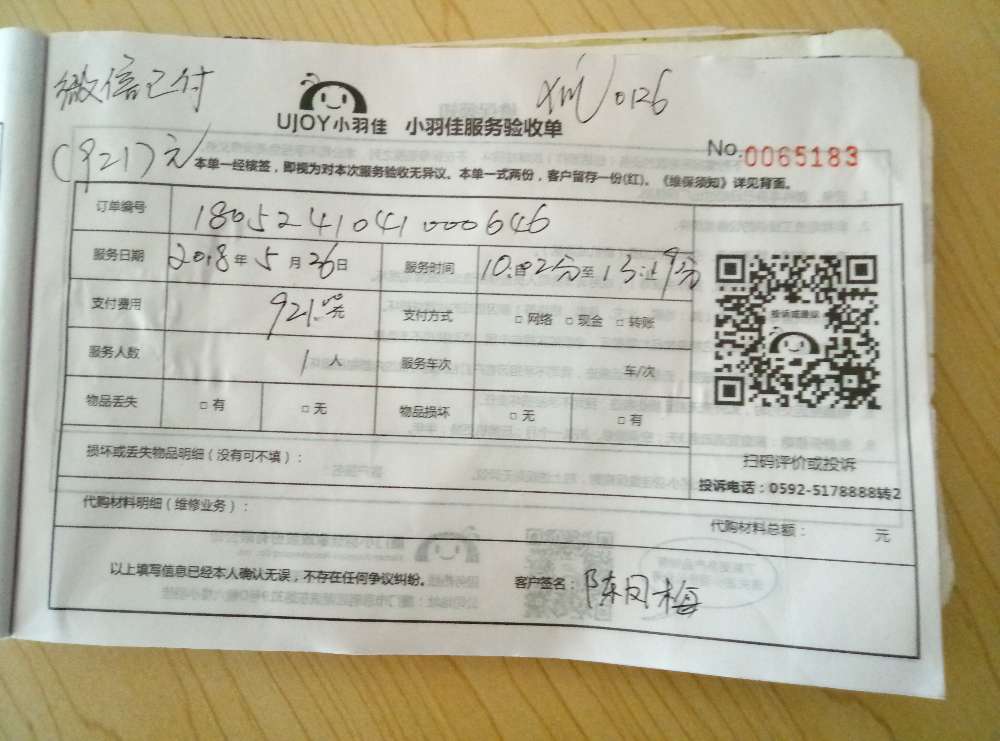 微信已付
(921)元
xm 0126
UJOY小羽佳 小羽佳服务验收单
No.0065183
本单一经核签，即视为对本次服务验收无异议。本单一式两份，客户留存一份(红)。《维保须知》详见背面。
订单编号 1805241041000646
服务日期 2018年5月26日 服务时间 10:02分至13:19分
支付费用 921.00元 支付方式 □网络 □现金 □转账
服务人数 1人 服务车次 车/次
物品丢失 □有 □无 物品损坏 □无 □有
投诉或建议
扫码评价或投诉
投诉电话：0592-5178888转2
损坏或丢失物品明细（没有可不填）：
代购材料明细（维修业务）： 代购材料总额： 元
以上填写信息已经本人确认无误，不存在任何争议纠纷。 客户签名：陈凤梅